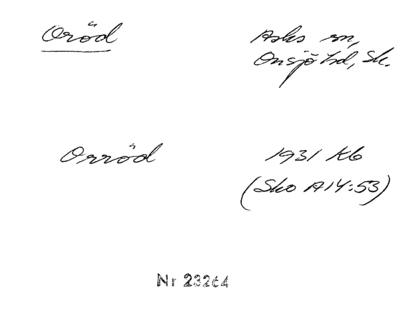 Oröd Asks sn,
Onsjö hd, Sk.
Orröd 1931 Kb
(Sko A14:53)
Nr 23264